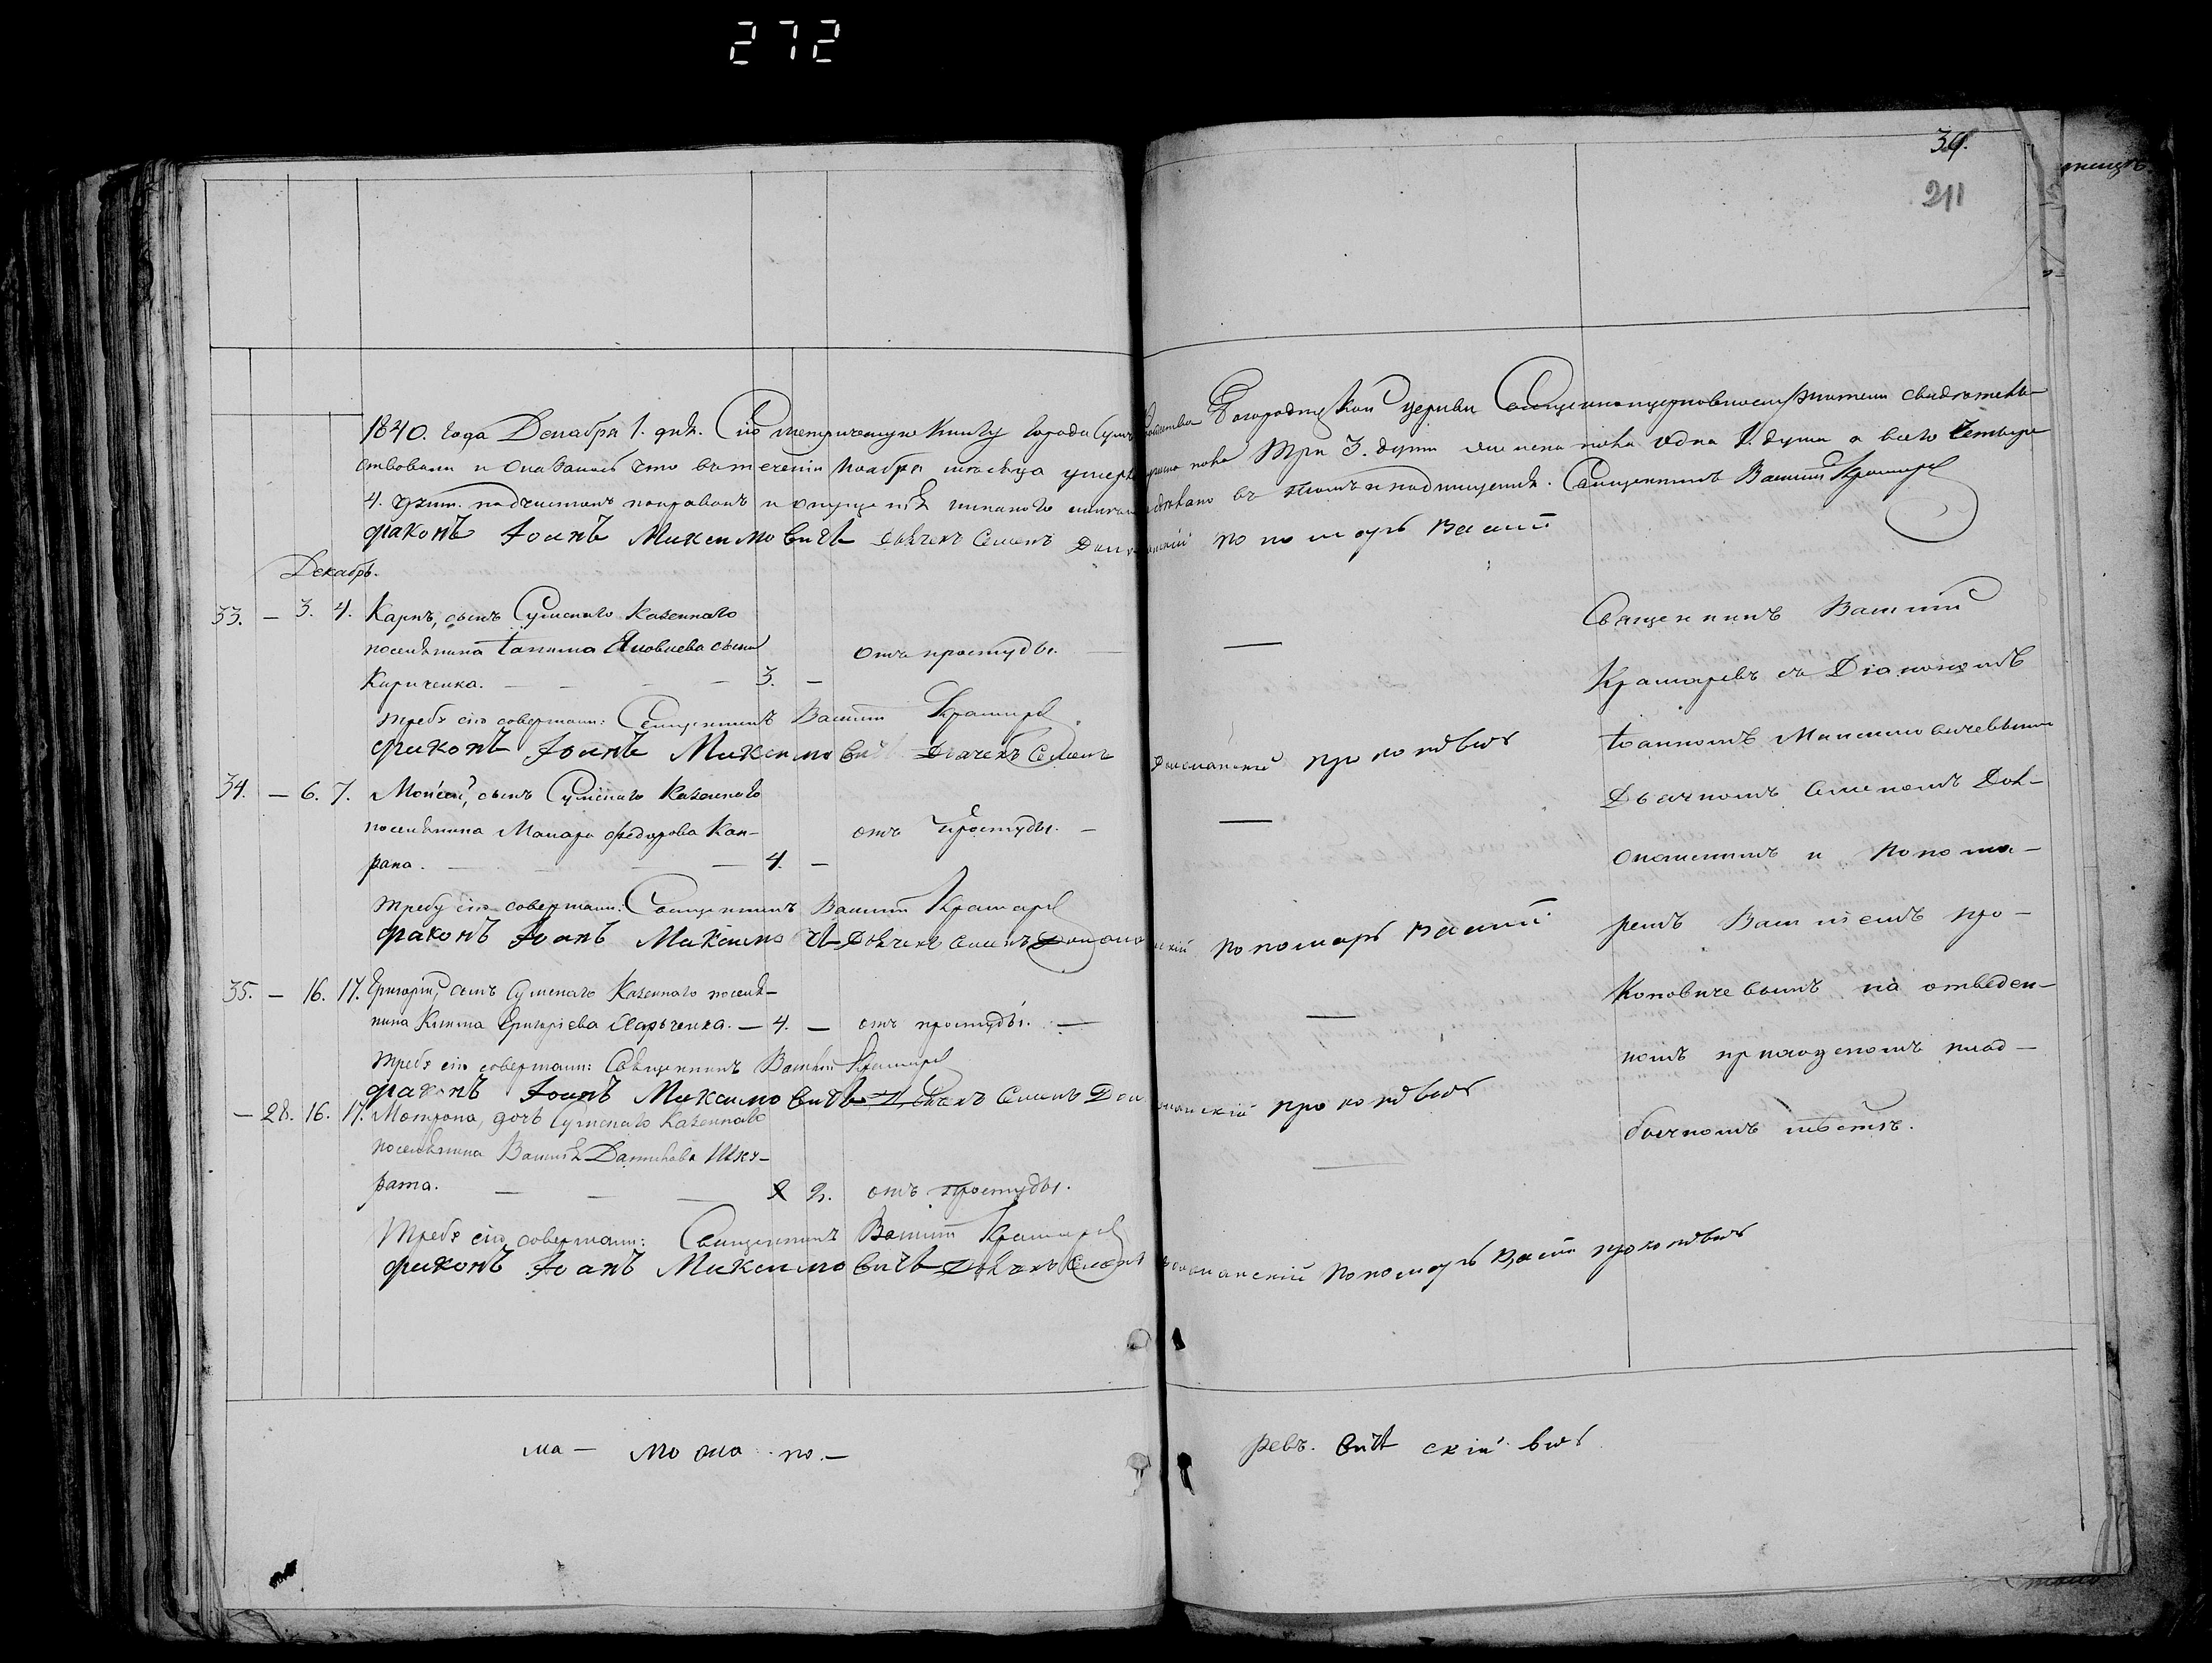 272
34.
211
1840. года Декабря 1. дня. Сію метрическую книгу города Сумъ Рождества Богородицкой церкви Священноцерковнослужители свидѣтель-
ствовали и оказалось что въ теченіи Ноября мѣсяца умерло мужеска пола три 3. души женска пола одна 1. душа а всего четыре
4. души. подчистокъ поправокъ и опущеній никакого въ томъ и подпищемся. Священникъ Василій Крамаревъ
Діаконъ Іоанъ Максимовичъ Дьячекъ Семенъ Доломанскій Пономарь Василій
Декабрь.
33. — 3. 4. Карпъ, сынъ Сумскаго Казеннаго
поселянина Іоакима Яковлева сына отъ простуды. —
Кириченка. — 3. —
Требу сію совершали: Священникъ Василій Крамаревъ
Діаконъ Іоанъ Максимовичъ Дьячекъ Семенъ Доломанскій
34. — 6. 7. Моисей, сынъ Сумскаго Казеннаго
поселянина Макара Федорова Кап- отъ простуды. —
рана. — 4. —
Требу сію совершали: Священникъ Василій Крамаревъ
Діаконъ Іоанъ Максимо чъ Дьячекъ Семенъ Доломанскій Пономарь Василій
35. — 16. 17. Григорій, сынъ Сумскаго Казеннаго поселя-
нина Климa Григорієва — 4. — отъ простуды. —
Требу сію совершали: Священникъ Василій Крамаревъ
Діаконъ Іоанъ Максимовичъ Дьячекъ Семенъ Доломанскій
— 28. 16. 17. Матрона, дочь Сумскаго Казеннаго
поселянина Василія Данилова Шку-
рата. — 2. отъ простуды.
Требу сію совершали: Священникъ Василій Крамаревъ
Діаконъ Іоанъ Максимовичъ Дьячекъ Семенъ Доломанскій Пономарь Василій
Священникъ Василій
Крамаревъ съ Діакономъ
Іоанномъ Максимовичевымъ
Дьячкомъ Семеномъ Дол-
оманскимъ и Понома-
ремъ Василіемъ Про-
коповичевымъ на отведен-
номъ приходскомъ клад-
бичномъ мѣстѣ.
ма — мо ома по. —
ревъ. вичъ скій вичъ